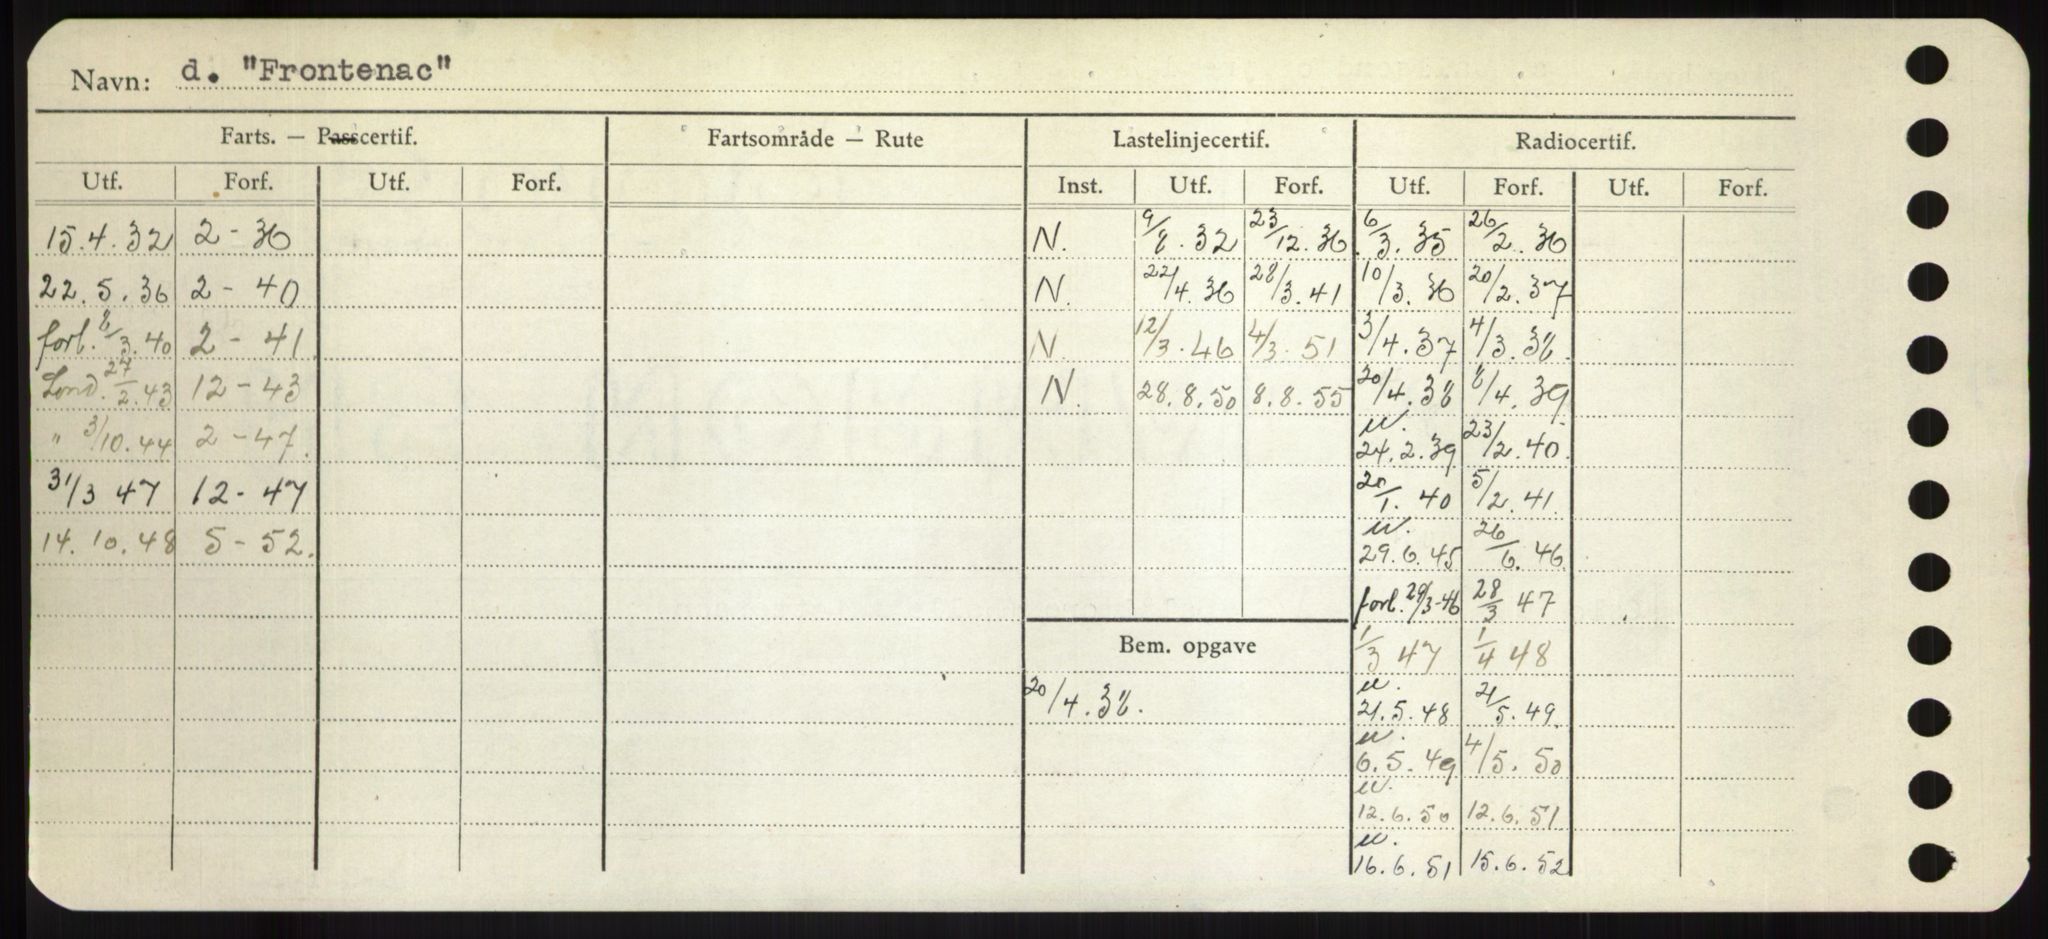 Navn: d. "Frontenac"
Farts. — Passcertif. Fartsområde — Rute Lastelinjecertif. Radiocertif.
Utf. Forf. Utf. Forf. Inst. Utf. Forf. Utf. Forf. Utf. Forf.
15.4.32 2-36 N. 9/8.32 23/12.36 6/3.35 26/2.36
22.5.36 2-40 N. 22/4.36 28/3.41 10/3.36 20/2.37
forl. 8/3.40 2-41 N. 12/3.46 4/3.51 3/4.37 4/3.38.
Lond. 27/2.43 12-43 N. 28.8.50 8.8.55 20/4.38 8/4.39
" 3/10.44 2-47. u. 24.2.39 23/2.40.
31/3 47 12-47 20/1.40 5/2.41.
14.10.48 5-52. u. 29.6.45 26/6.46
forl. 29/3-46 28/3 47
Bem. opgave 1/3 47 1/4 48
20/4.38. u. 21.5.48 21/5.49.
u. 6.5.49 4/5.50
u. 12.6.50 12.6.51
u. 16.6.51 15.6.52